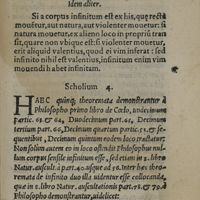 Idem aliter.
Si a corpus infinitum est ex his, quæ recta
mouẽtur, aut natura, aut violenter mouetur: si
natura mouetur, ex alieno loco in propriũ tran
sit, quare non vbique est: si violenter mouetur,
erit aliquid valentius, quod ei vim inferat: sed
infinito nihil est valentius, infinitum enim vim
mouendi habet infinitam.
Scholium 4.
HAEC quinq; theoremata demonstrantur à
Philosopho primo libro de Cœlo, undecimum
partic. 63. & 64. Duodecimum part. 64. Decimum
tertium part. 66. Decimum quartum partic. 52. se-
quentibus, Decimum quintum eodem loco tractatur:
Non solum autem eo in loco ostendit Philosophus nul-
lum corpus sensile infinitum esse, sed etiam in 3. libro
Natur. auscult. à part. 40. usque ad 56. Inter hæc theo-
remata de infinito duo illa uidentur esse collocanda,
quæ in 8. libro Natur. auscultationis part. 78. & 79. à
Philosopho demonstrantur, uidelicet: